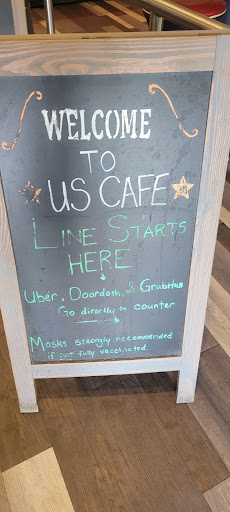 WELCOME
TO
US CAFE
LINE STARTS
HERE
Uber, Doordash, & GrubHub
Go directly to counter
Masks strongly recommended
if not fully vaccinated.